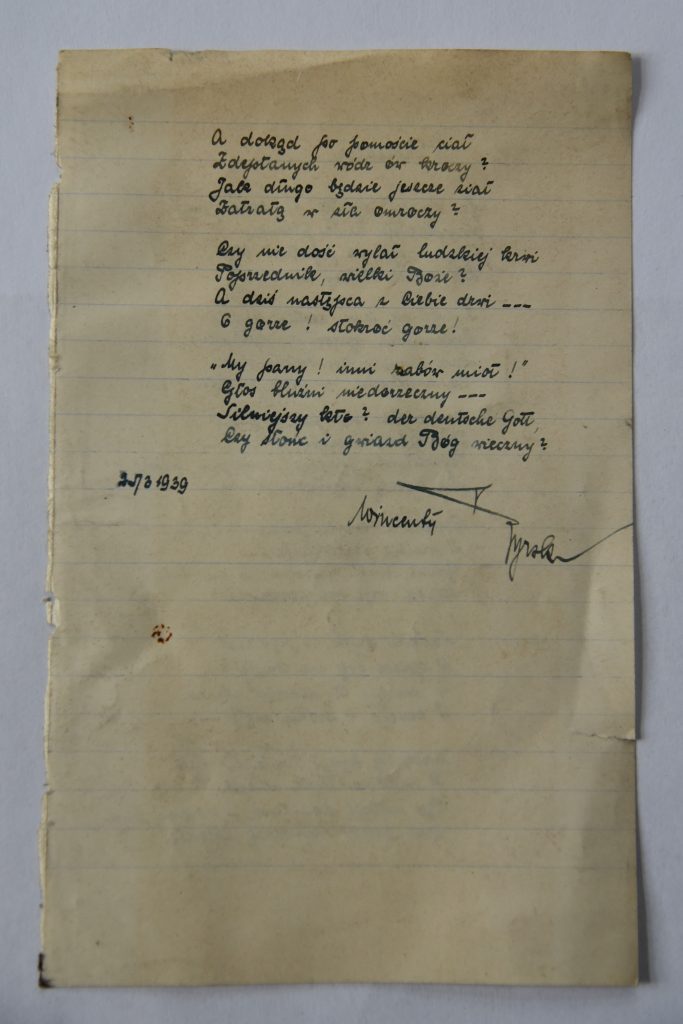 A dokąd po pomoście ciał
Zdeptanych wódz ów kroczy?
Jak długo będzie jeszcze siał
Zatratę w zła omroczy?
Czy nie dość wylał ludzkiej krwi
Poprzednik, wielki Boże?
A dziś następca z Ciebie drwi ---
O gorze! stokroć gorze!
„My pany! inni rabów miot!"
Głos bluźni niedorzeczny ---
Silniejszy kto? der deutsche Gott,
Czy słońc i gwiazd Bóg wieczny?
1939
Wincenty